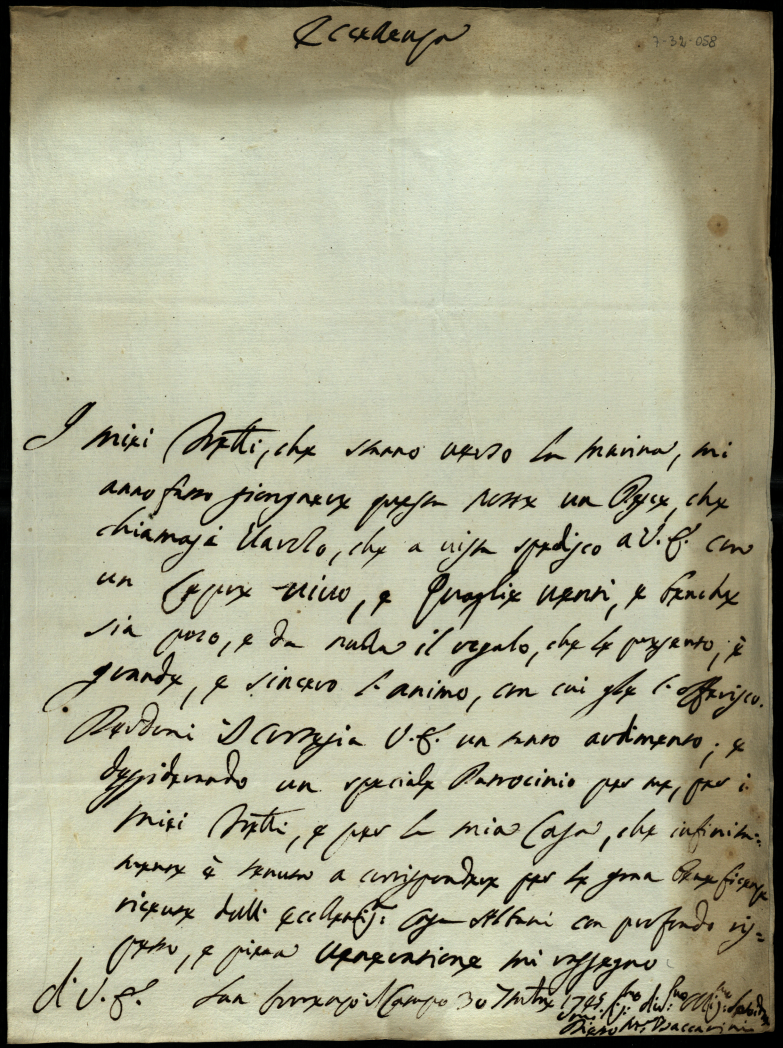 Eccellenza
7-32-058
I miei Fratelli, che stanno verso la marina, mi
anno fatto giongnere questa notte un Pesce, che
chiamasi Varolo, che a vista spedisco a V. E. con
un Lepure vivo, e Quaglie venti, e benche
sia poco, e da nulla il regalo, che le presento, è
grande, e sincero l'animo, con cui gle l'offerisco.
Perdoni in Cortesia V. E. un tanto ardimento; e
desiderando un speciale Patrocinio per me, per i
miei Fratelli, e per la mia Casa, che infinita=
mente è tenuta a corrispondere per le gran beneficenze
ricevute dall' eccellentis: Casa Albani con profondo ris=
petto, e piena venerazione mi rassegno
di V. E. San Lorenzo in Campo 30 7mbre 1745